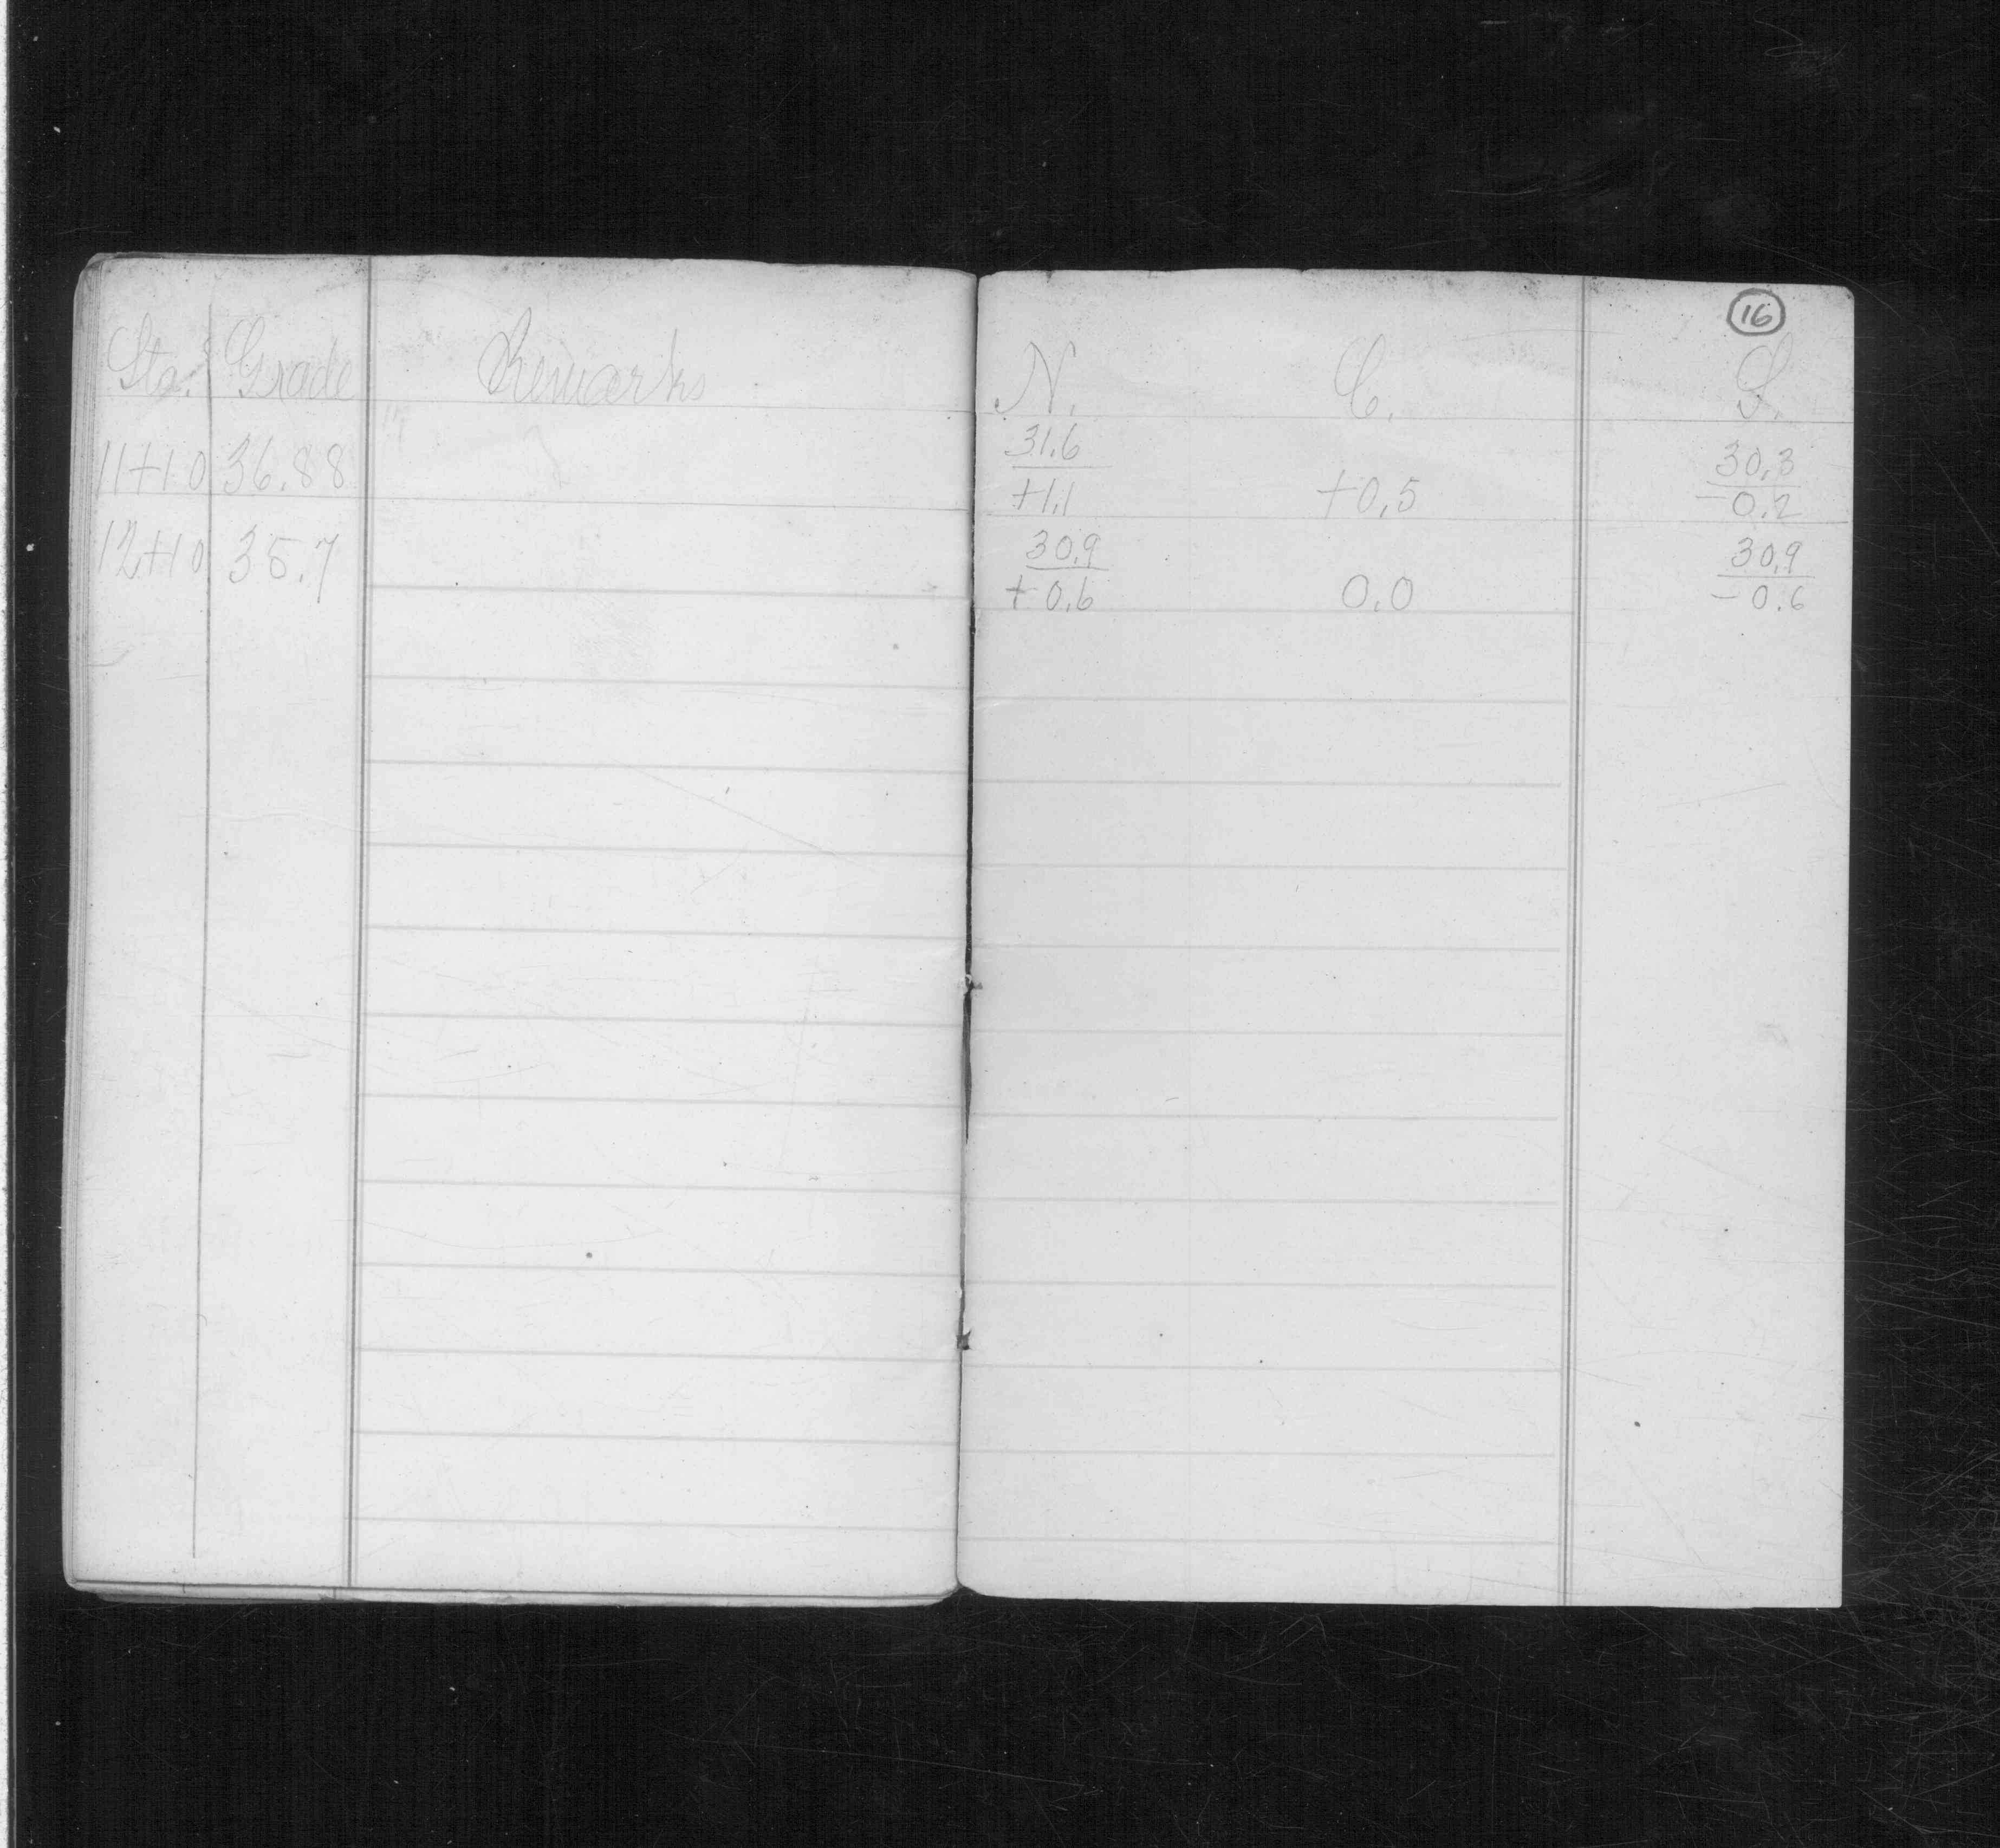 16
Sta. Grade Remarks N. C. S.
31.6 30.3
11+10 36.88 +1.1 +0.5 -0.2
30.9 30.9
12+10 35.7 +0.6 0.0 -0.6